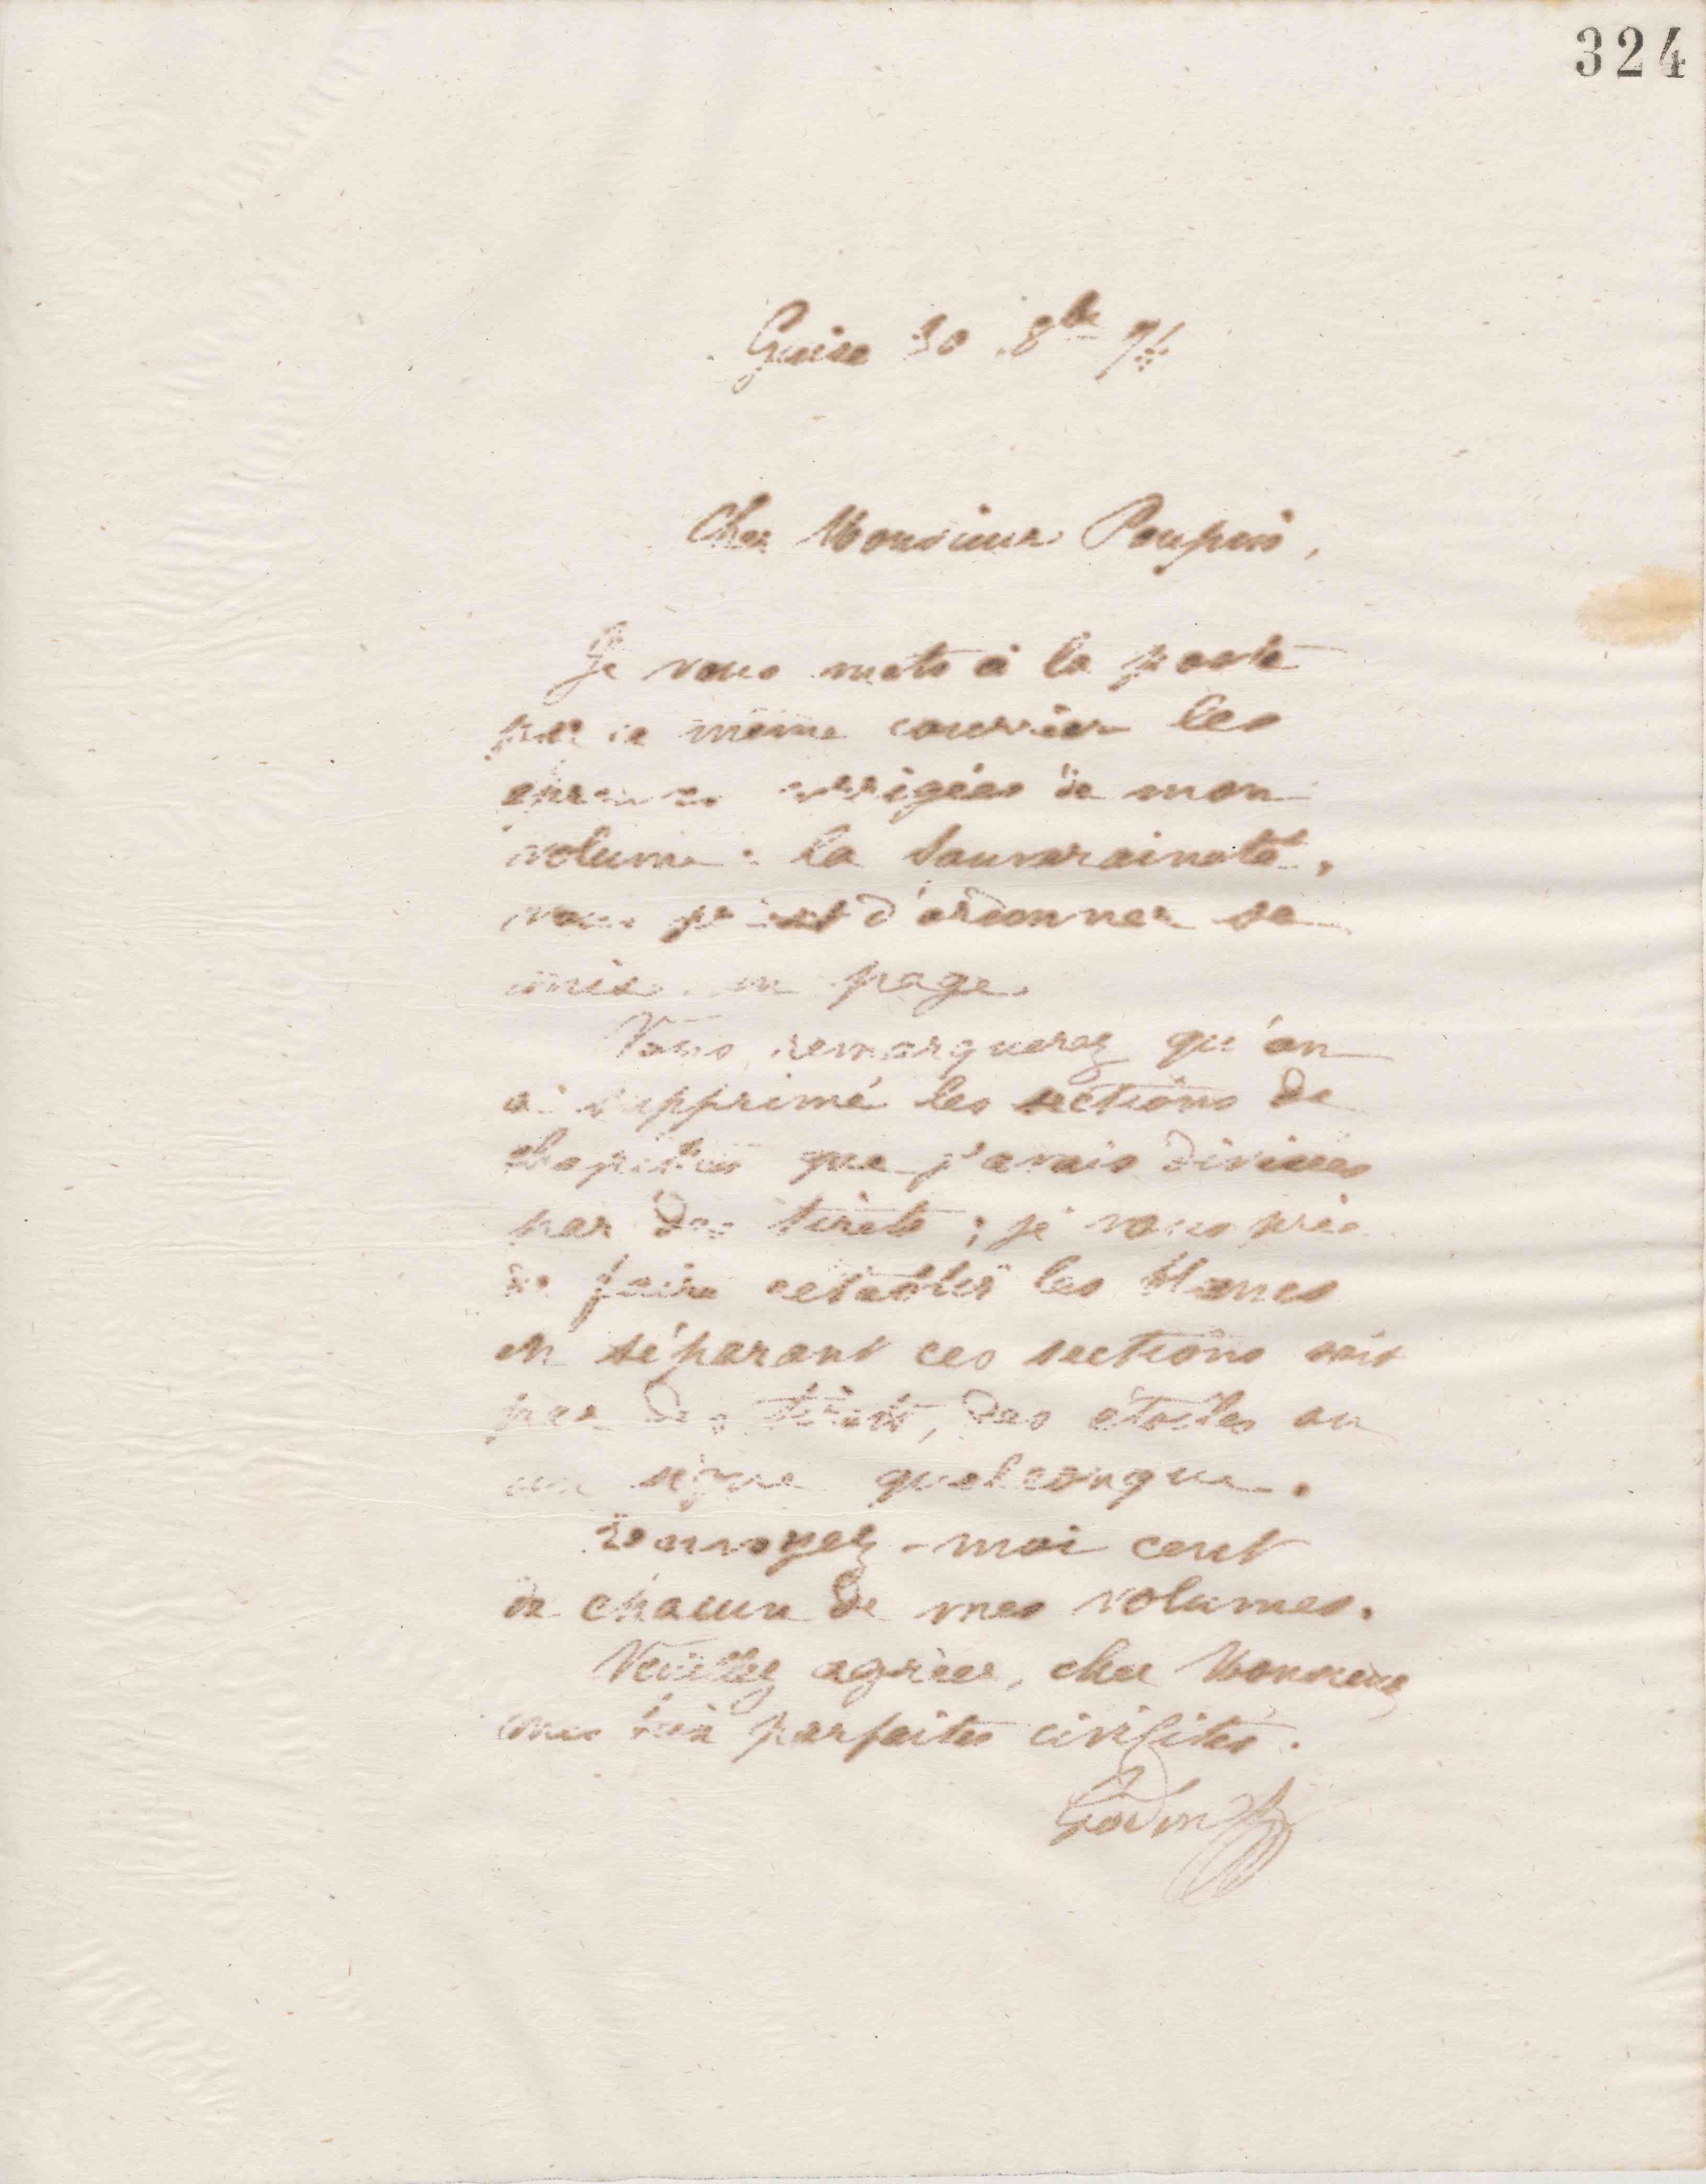 324
Guise 30 8bre 74
Cher Monsieur Poupin,
Je vous mets à la poste
par ce même courrier les
épreuves corrigées de mon
volume : la Souveraineté,
vous priant d'ordonner sa
mise en page.
Vous remarquerez qu'on
a supprimé les sections de
chapitres que j'avais divisées
par des tirets ; je vous prie
de faire rétablir les blancs
en séparant ces sections soit
par des tirets, des étoiles ou
un signe quelconque.
Renvoyez-moi cent
de chacun de mes volumes.
Veuillez agréer, cher Monsieur,
mes très parfaites civilités.
Godin